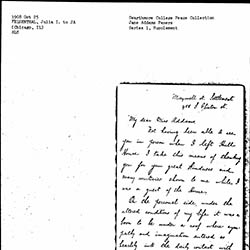 1908 Oct 25
FELSENTHAL, Julia I. to JA
(Chicago, Il)
ALS
Swarthmore College Peace Collection
Jane Addams Papers
Series 1, Supplement
Maxwell St. Settlement
My dear Miss Addams
Not having been able to see
you in person when I left Hull
House I take this means of thanking
you for your great kindness and
many courtesies shown to me while I
was a guest of the House.
On the personal side, under the
altered conditions of my life it was a
boon to be under a roof where your
and imagination entered so
into the daily